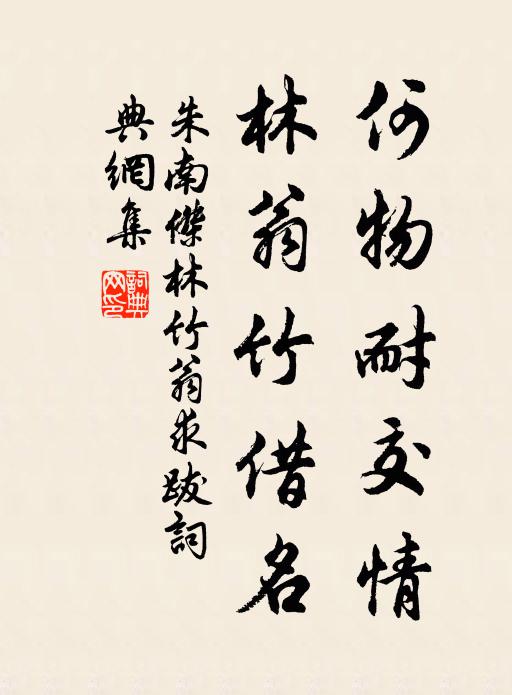 何物耐交情
林翁竹借名
朱南傑林竹翁求跋詞
典網集
詞典網印